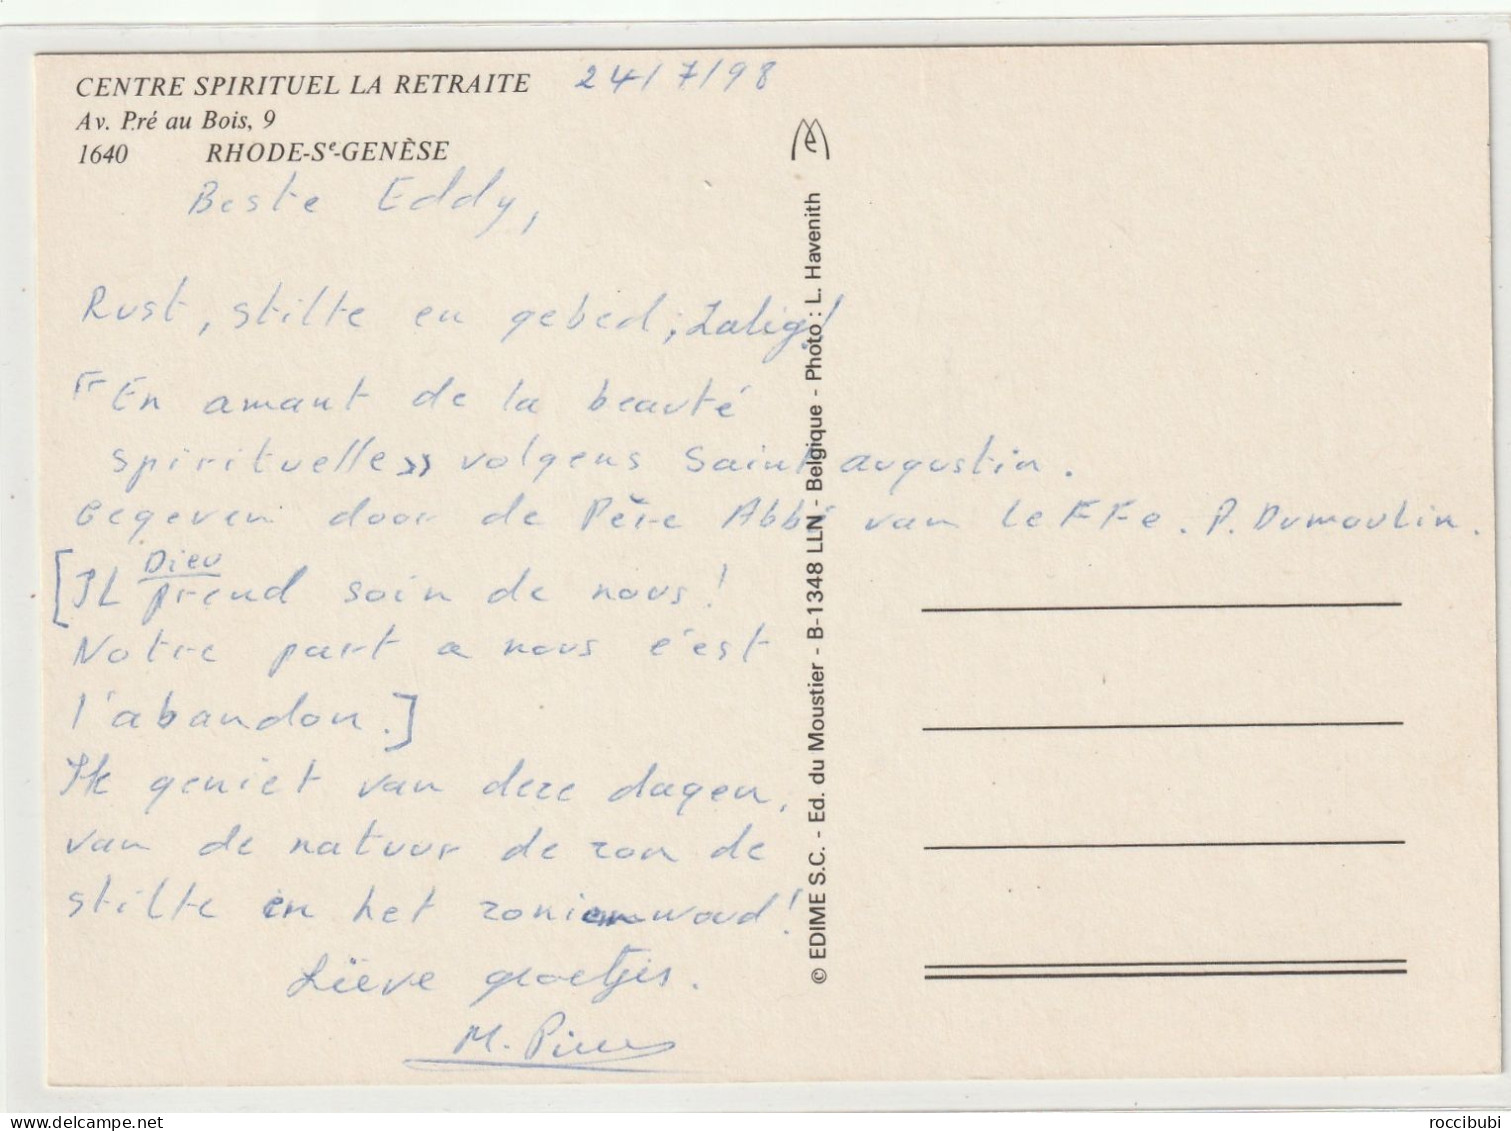 CENTRE SPIRITUEL LA RETRAITE
24/7/98
Av. Pré au Bois, 9
1640 RHODE-Sᵉ-GENÈSE
Beste Eddy,
Rust, stilte en gebed, Zalig!
"En amant de la beauté
spirituelle» volgens Saint augustin.
Gegeven door de Père Abbé van Leffe. P. Dumoulin.
[IL Dieu prend soin de nous!
Notre part a nous c'est
l'abandon.]
Ik geniet van deze dagen,
van de natuur de zon de
stilte en het zonienwoud!
Liève groetjes.
M.
© EDIME S.C. - Ed. du Moustier - B-1348 LLN - Belgique - Photo : L. Havenith
roccibubi